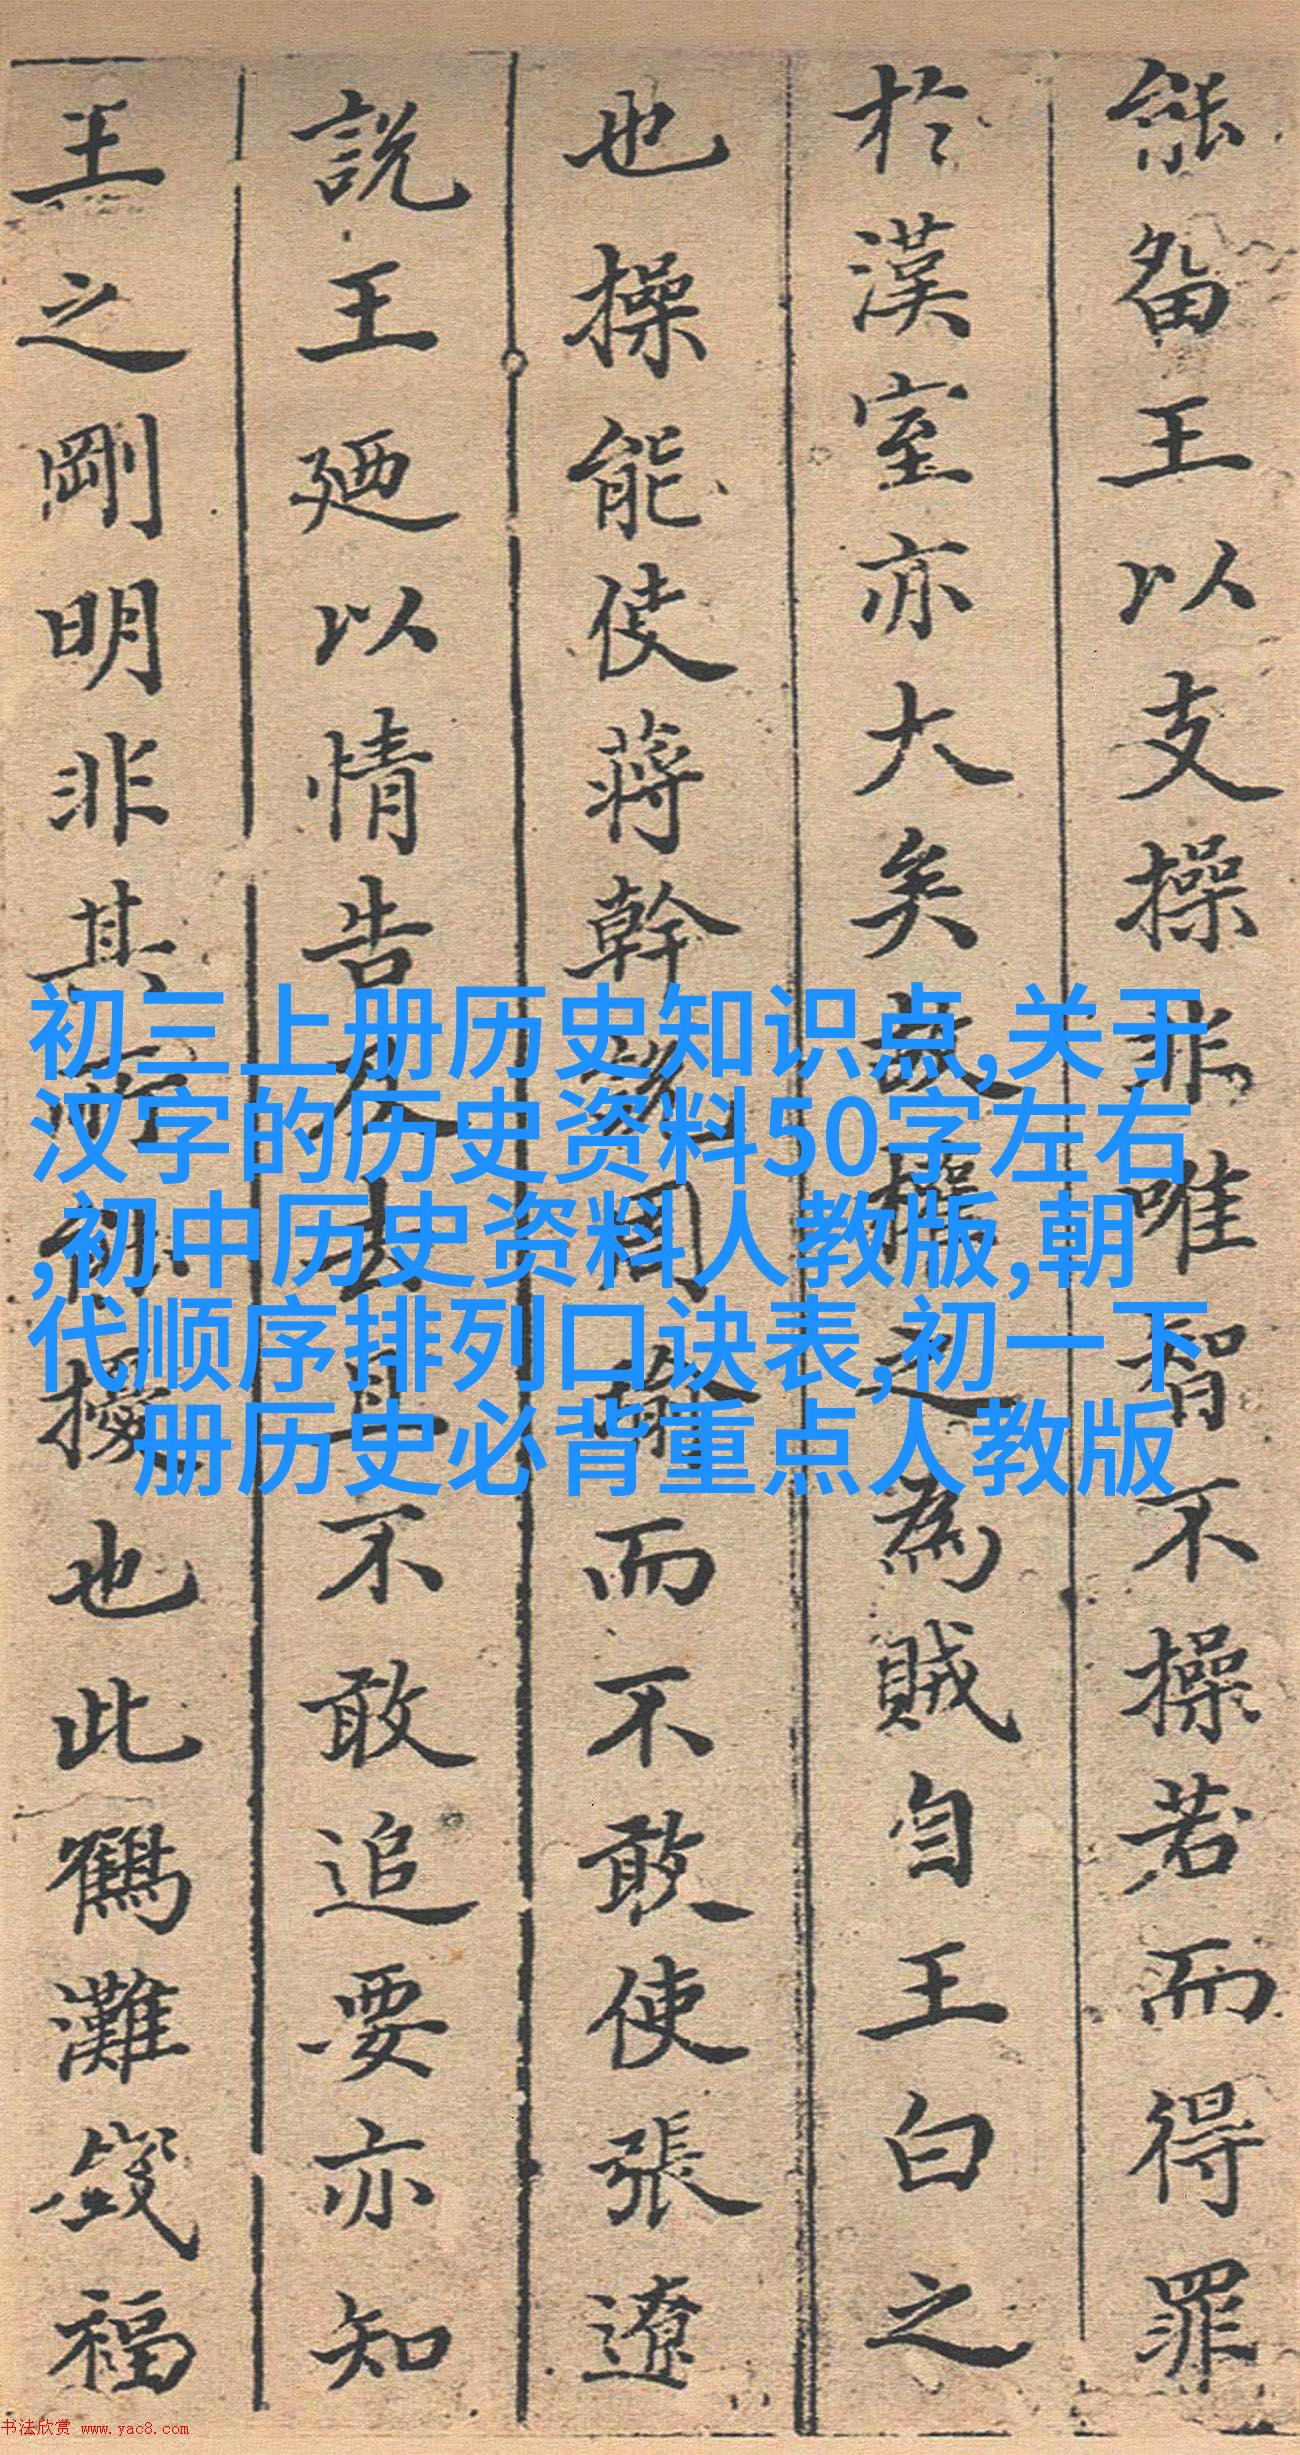 能留王以支操非唯智不操若而得罪
於漢室亦大矣故操之為賊自王白之
也操能使蔣幹說周瑜而不敢使張遼
說王廼以情告及去且不敢追要亦知
王之剛明非其所擾也此鶴灘錢福
初三上册历史知识点,关于
汉字的历史资料50字左右
,初中历史资料人教版,朝
代顺序排列口诀表,初一下
册历史必背重点人教版
书法欣赏 www.yac8.com